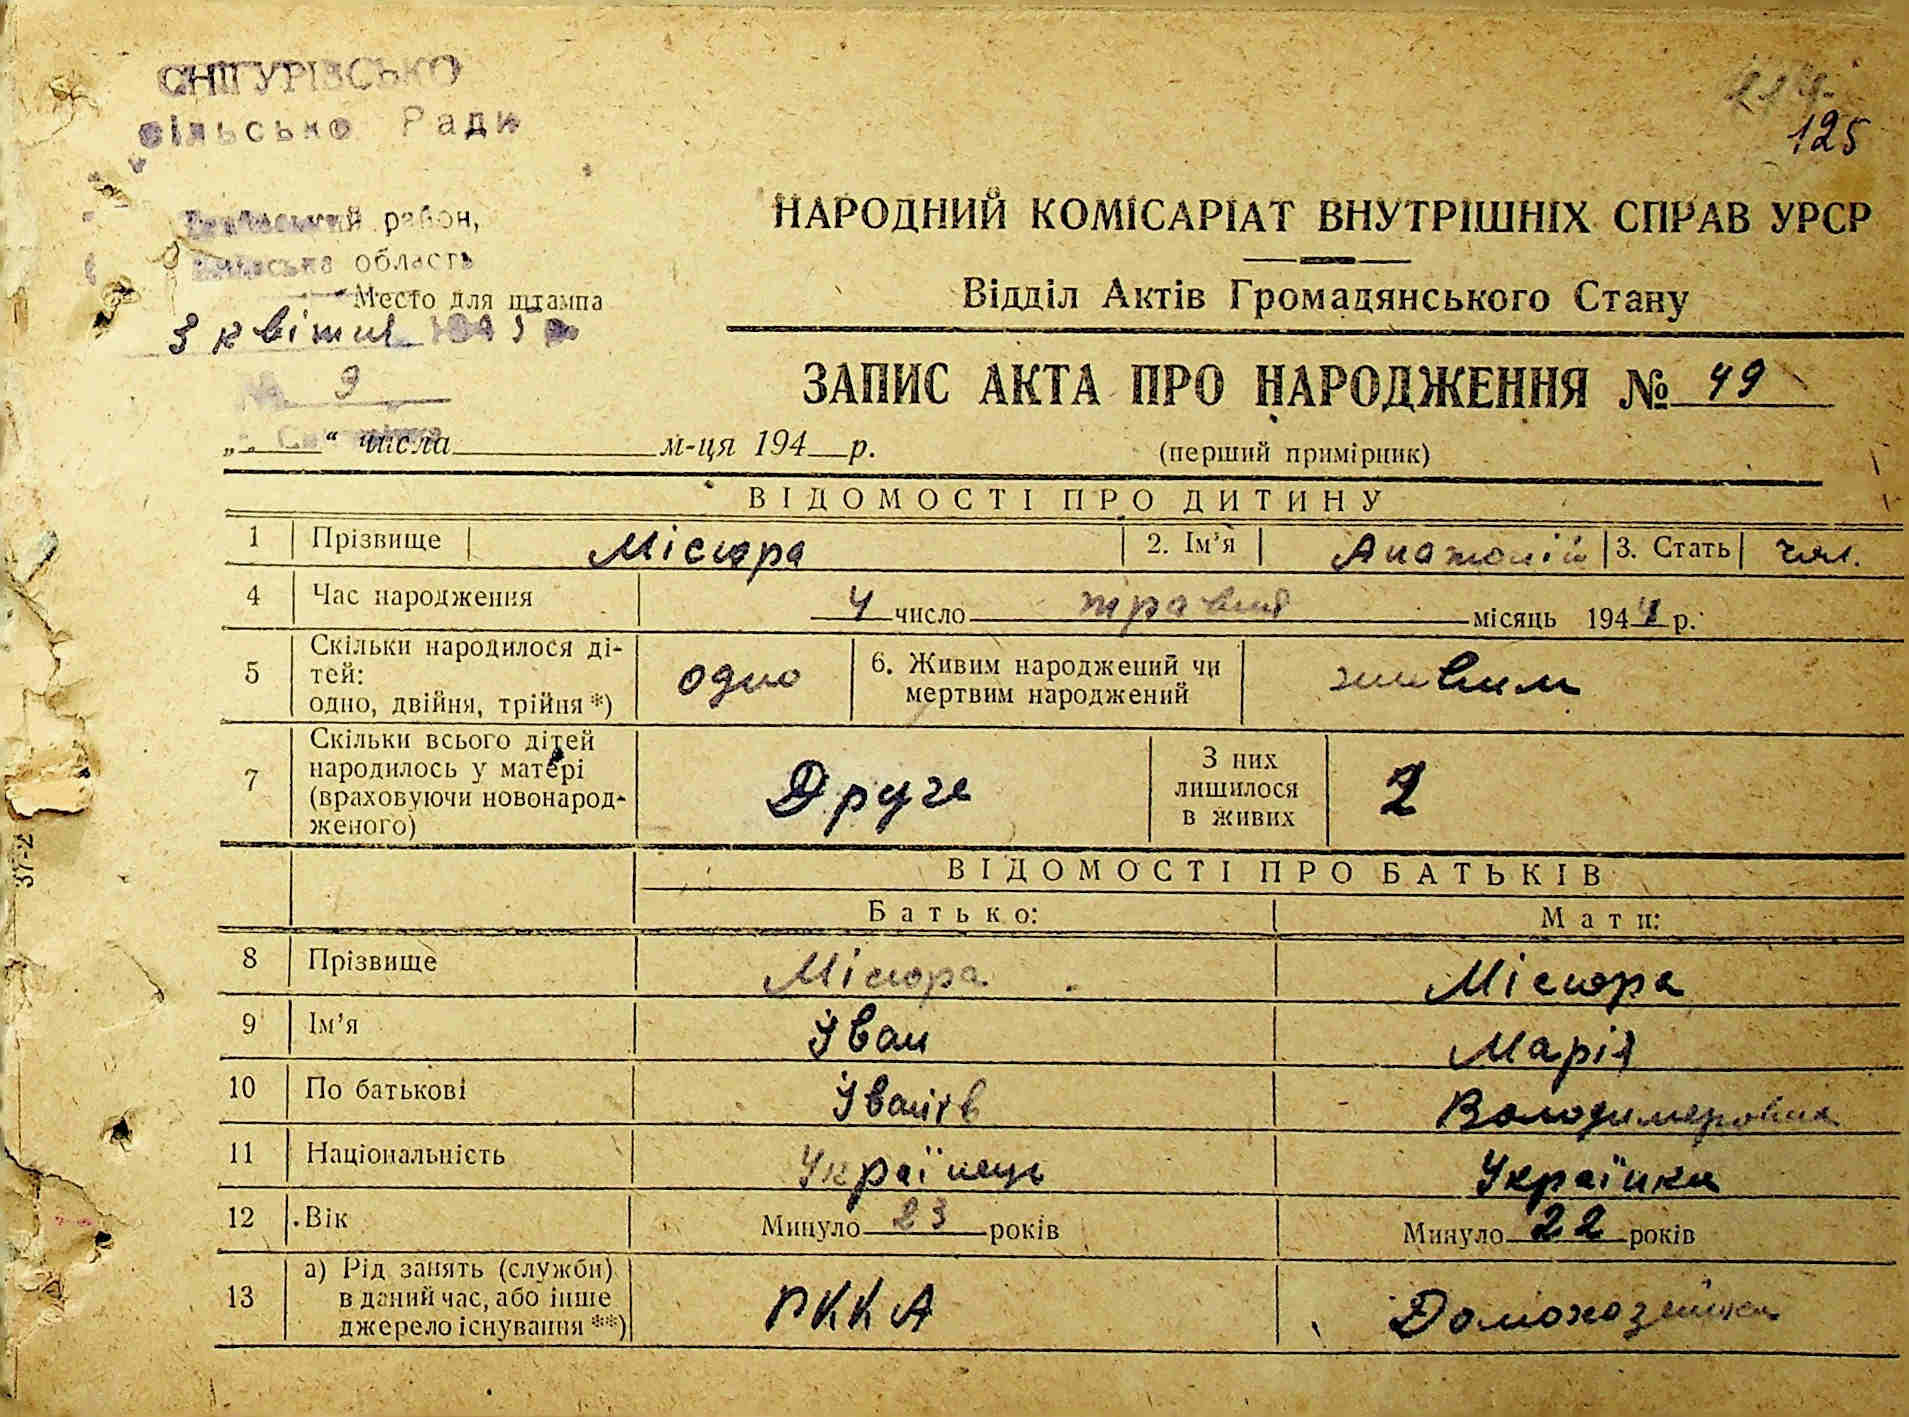 СНІГУРІВСЬКО
сільсько Ради
район,
область
Место для штампа
3 квітня
№ 9
125
НАРОДНИЙ КОМІСАРІАТ ВНУТРІШНІХ СПРАВ УРСР
Відділ Актів Громадянського Стану
ЗАПИС АКТА ПРО НАРОДЖЕННЯ № 49
„ “ числа м-ця 194 р.
(перший примірник)
ВІДОМОСТІ ПРО ДИТИНУ
1 Прізвище Місюра 2. Ім’я Анатолій 3. Стать чол.
4 Час народження 4 число травня місяць 1944 р.
5 Скільки народилося ді-
тей:
одно, двійня, трійня*) одно 6. Живим народжений чи
мертвим народжений живим
7 Скільки всього дітей
народилось у матері
(враховуючи новонарод-
женого) Друге З них
лишилося
в живих 2
ВІДОМОСТІ ПРО БАТЬКІВ
Батько: Мати:
8 Прізвище Місюра Місюра
9 Ім’я Іван Марія
10 По батькові Іванів Володимеровна
11 Національність Українець Українка
12 Вік Минуло 23 років Минуло 22 років
13 а) Рід занять (служби)
в даний час, або інше
джерело існування**) РККА Домохозяйка
37-2